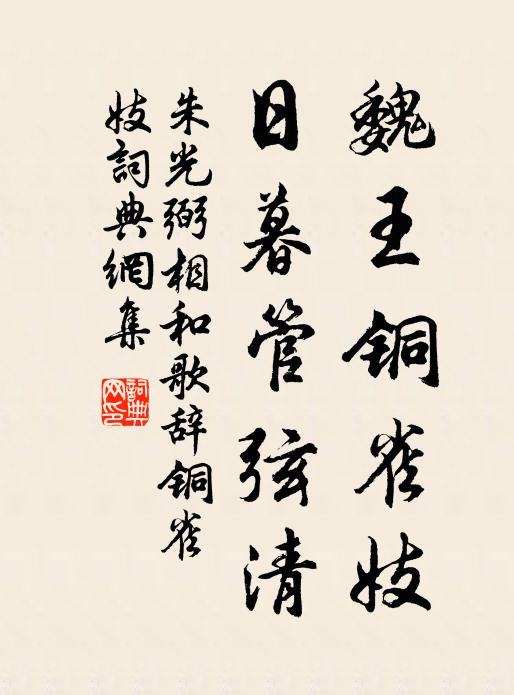 魏王铜雀妓
日暮管弦清
朱光弼相和歌辞铜雀
妓詞典網集
詞典网印